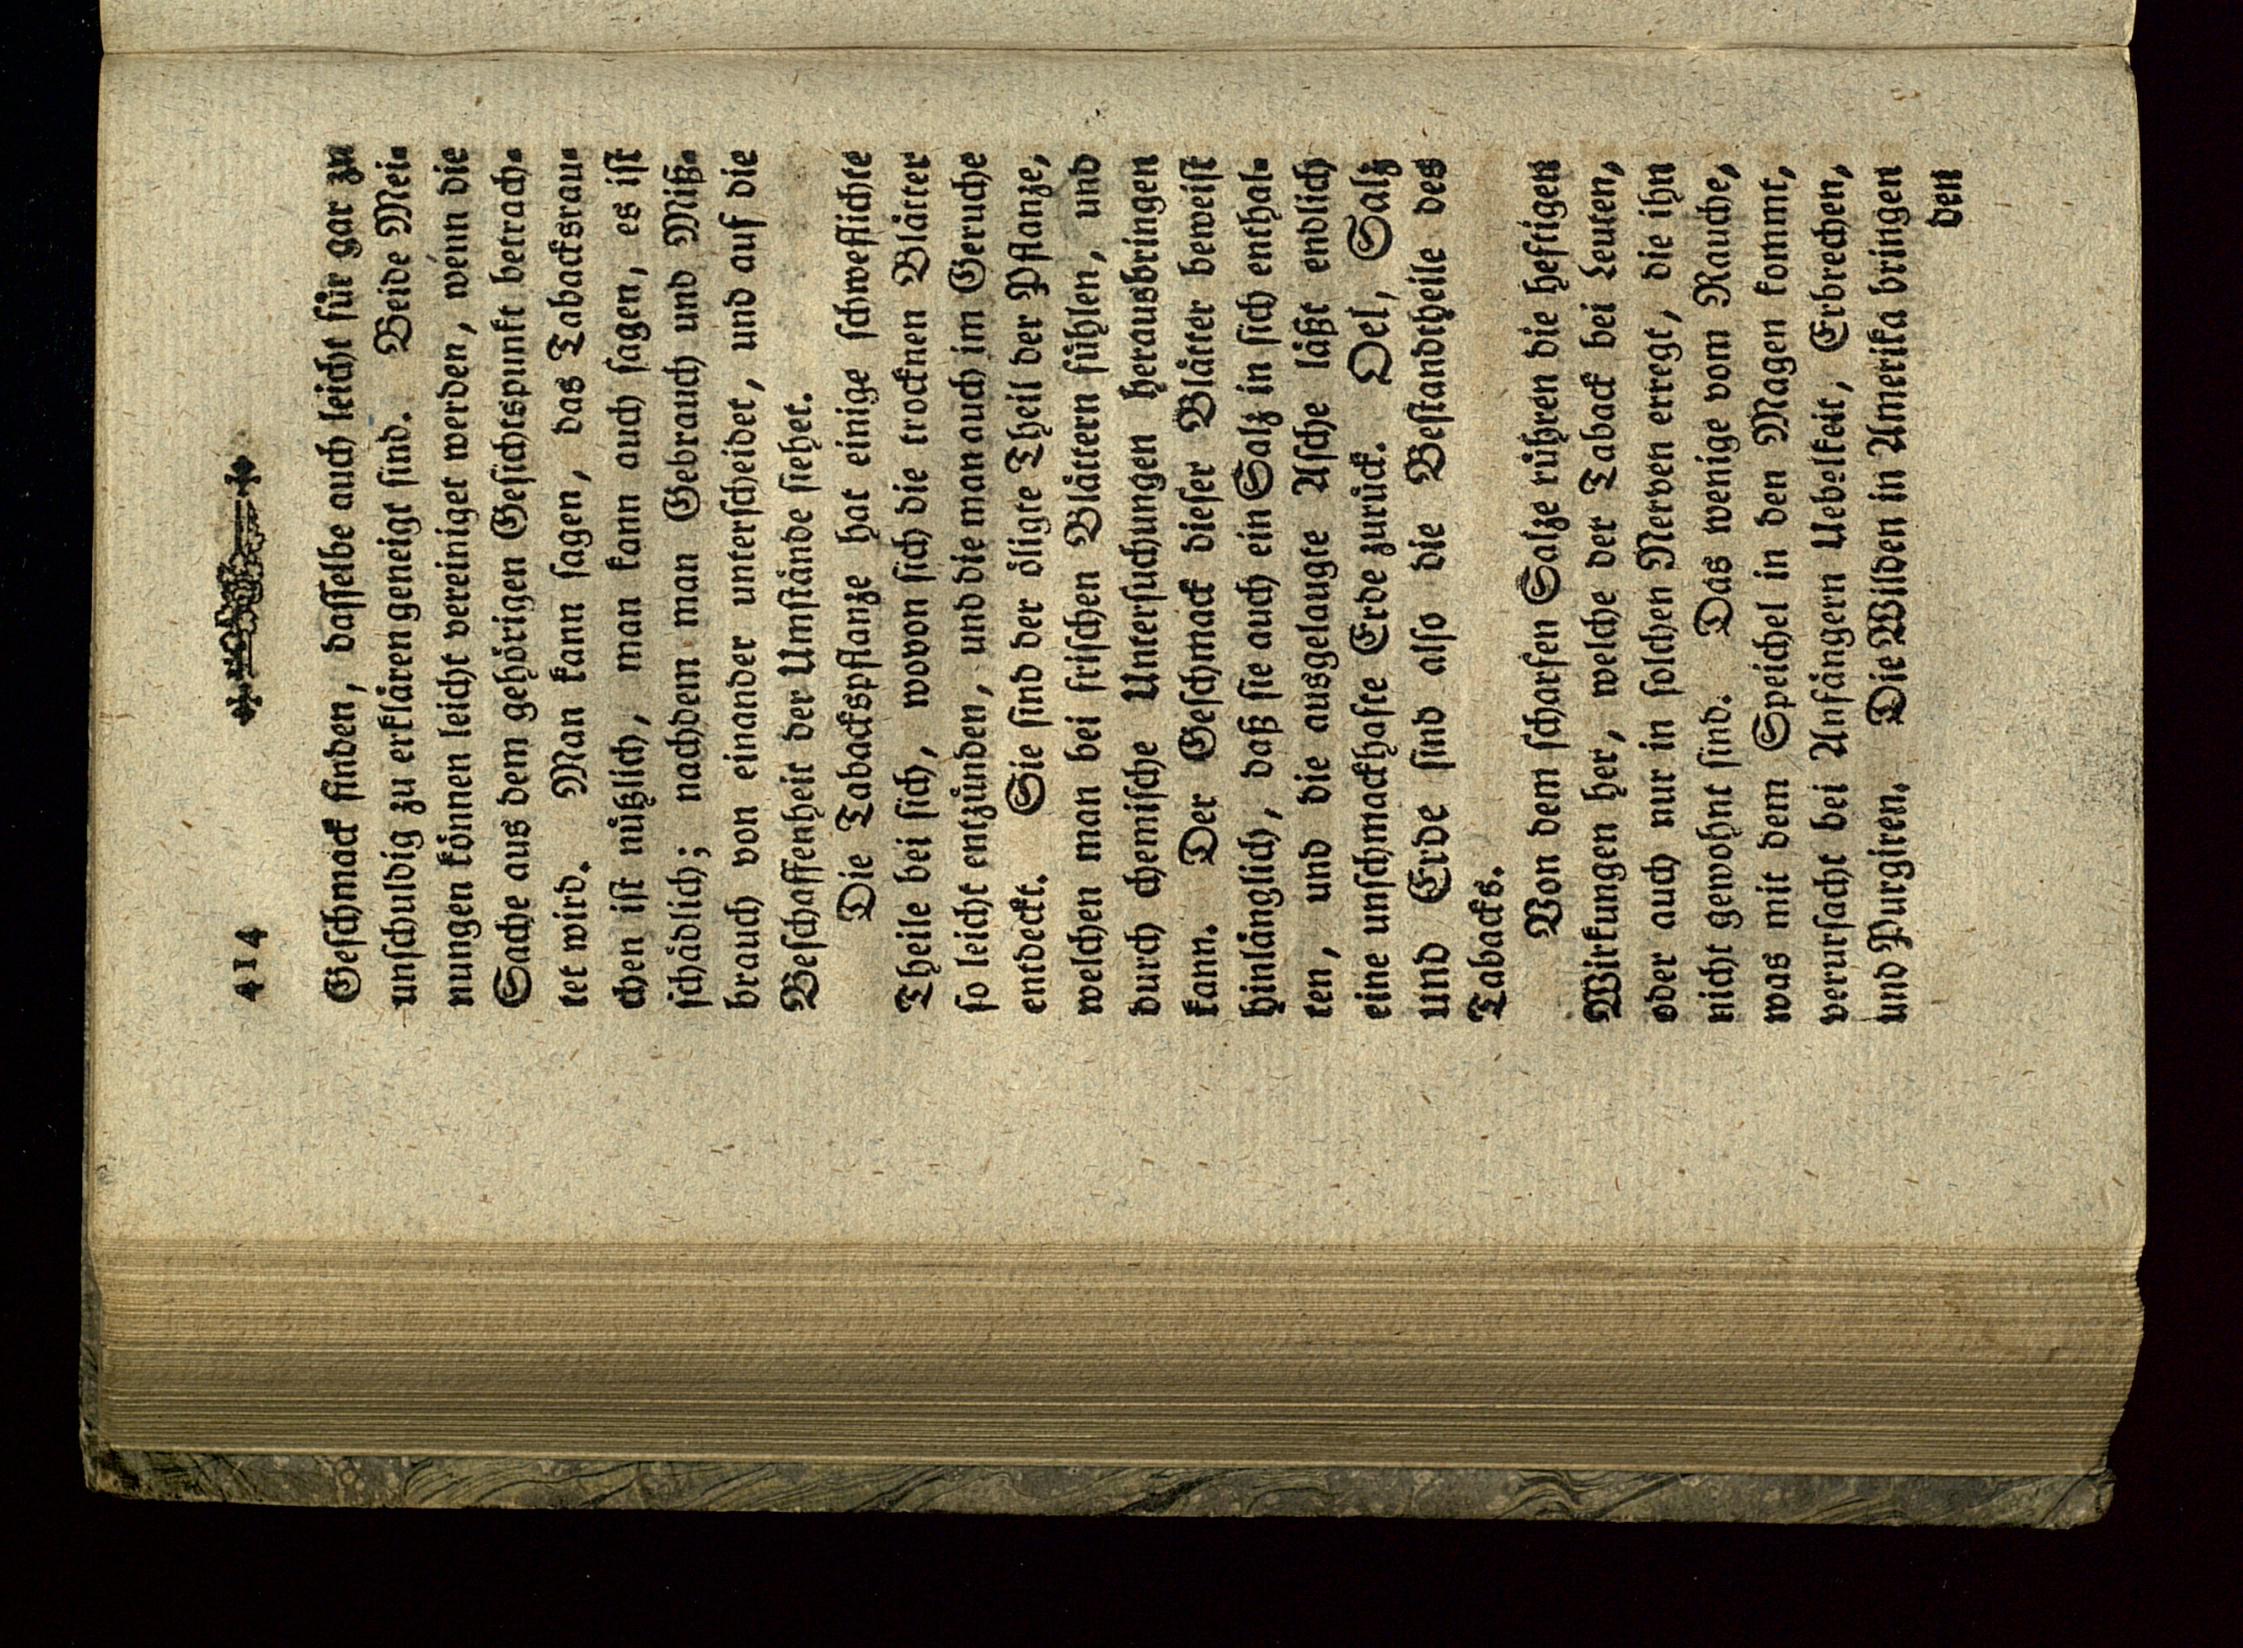 414
Geſchmack finden, daſſelbe auch leicht für gar zu
unſchuldig zu erklären geneigt ſind. Beide Mei-
nungen können leicht vereiniget werden, wenn die
Sache aus dem gehörigen Geſichtspunkt betrach-
tet wird. Man kann ſagen, das Tabacksrau-
chen iſt nützlich, man kann auch ſagen, es iſt
ſchädlich; nachdem man Gebrauch und Miß-
brauch von einander unterſcheidet, und auf die
Beſchaffenheit der Umſtände ſiehet.
Die Tabackspflanze hat einige ſchweflichte
Theile bei ſich, wovon ſich die trocknen Blätter
ſo leicht entzünden, und die man auch im Geruche
entdeckt. Sie ſind der öligte Theil der Pflanze,
welchen man bei friſchen Blättern fühlen, und
durch chemiſche Unterſuchungen herausbringen
kann. Der Geſchmack dieſer Blätter beweiſt
hinlänglich, daß ſie auch ein Salz in ſich enthal-
ten, und die ausgelaugte Aſche läßt endlich
eine unſchmackhafte Erde zurück. Oel, Salz
und Erde ſind alſo die Beſtandtheile des
Tabacks.
Von dem ſcharfen Salze rühren die heftigen
Wirkungen her, welche der Taback bei Leuten,
oder auch nur in ſolchen Nerven erregt, die ihn
nicht gewohnt ſind. Das wenige vom Rauche,
was mit dem Speichel in den Magen kommt,
verurſacht bei Anfängern Uebelkeit, Erbrechen,
und Purgiren. Die Wilden in Amerika bringen
den